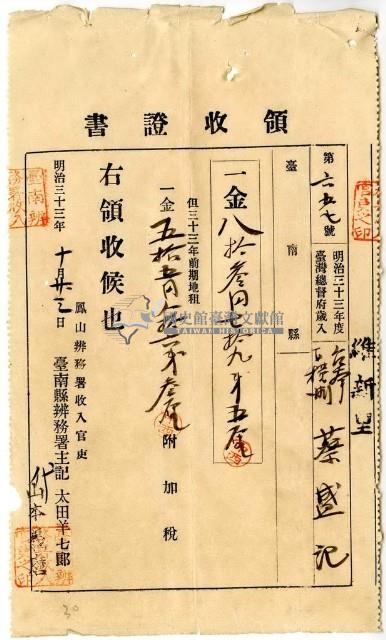 領收證書
維新里
第六五七號
明治三十三年度
臺灣總督府歲入
蔡盛記
臺南縣
一金八拾叁円七拾九半五厘
但三十三年前期地租
一金五拾
附加稅
右領收候也
明治三十三年十月廿三日
鳳山辨務署收入官吏
臺南縣辨務署主記 太田羊七郎
代山本
國史館臺灣文獻館
30